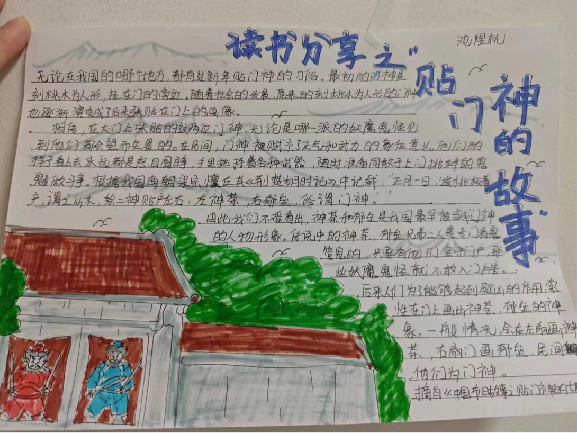 读书分享之"贴门神的故事"
沈煜杭
无论在我国的哪个地方,都有过新年贴门神的习俗。最初的门神是
刻桃木为人形,挂在门的旁边,随着社会的发展,原来的刻桃木为人形的门神
也逐渐演变成了后来张贴在门上的画像。
相传,在大门上张贴的这两位门神,无论是哪一派的妖魔鬼怪见
到他们都会望而生畏的。在民间,门神被赋予了正气和武力的象征意义,他们的
样子看上去永远都是怒目圆睁,手里拿着各种武器,随时准备同敢于上门挑衅的鬼
魅做斗争。根据我国南朝梁宗懔在其《荆楚岁时记》中记载:"正月一日,绘桃板着
户,谓之仙木,绘二神贴户左右,左神荼,右郁垒,俗谓门神。"
由此我们不难看出,神荼和郁垒是我国最早被当门神
的人物形象。传说中的神荼、郁垒兄弟二人是专门看鬼
的,只要有他们
些妖魔鬼怪就不敢入门为害。
后来人们为了能够起到驱凶的作用,
在门上画神荼、郁垒的神
象。一般情况,会在左扇画神
荼,右扇门画郁垒,民间
他们为门神。
摘自《中国节